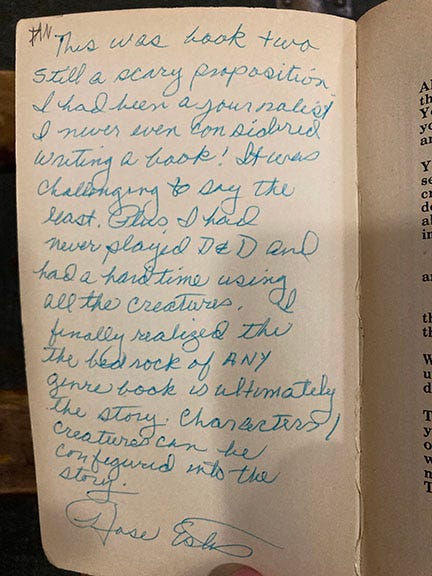 This was book two
still a scary proposition
I had been a journalist
I never even considered
writing a book! It was
challenging to say the
least. Plus I had
never played D&D and
had a hard time using
all the creatures. I
finally realized the
the bedrock of ANY
genre book is ultimately
the story. Characters/
creatures can be
configured into the
story.
Rose Estes